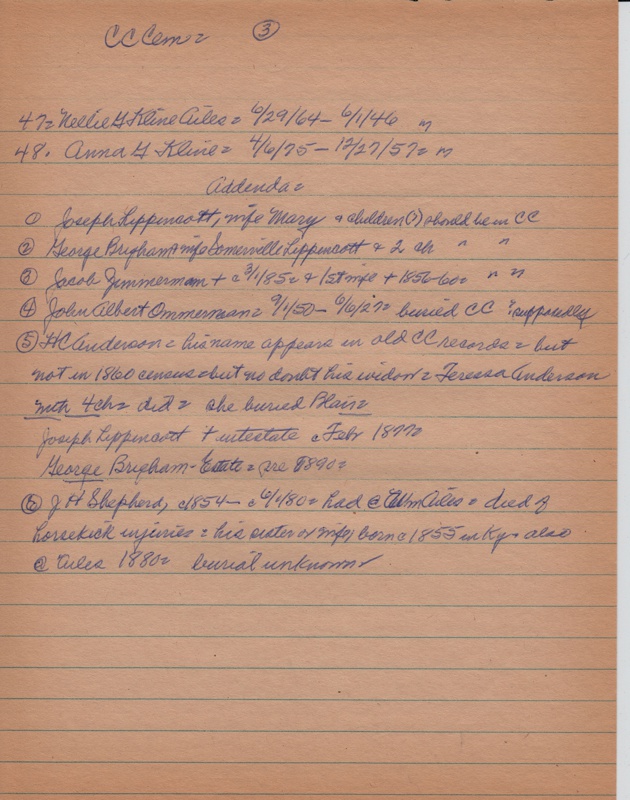 CC Cem =   3
47 = Nellie G Kline Aules = 6/29/64 – 6/1/46 m
48. Anna G Kline = 4/6/75 – 12/27/57 = m
Addenda =
1 Joseph Lippencott, wife Mary & children (?) should be in CC
2 George Brigham & wife Somerville Lippencott & 2 ch " "
3 Jacob Zimmerman + c 3/1/85 = & 1st wife + 1856-60 = " "
4 John Albert Ommerman = 9/1/50 – 6/6/27 = buried CC ? supposedly
5 HC Anderson = his name appears in old CC records = but
not in 1860 census = but no doubt his widow = Teressa Anderson
with 4 ch = did = she buried Blain =
Joseph Lippencott + intestate c Feby 1877 =
George Brigham - Estate = pre 1890 =
6 J H Shepherd, c1854 – c 6/1/80 = had @ Wm Aules = died of
horsekick injuries = his sister or wife, born c 1855 in Ky. also
@ Aules 1880 = burial unknown